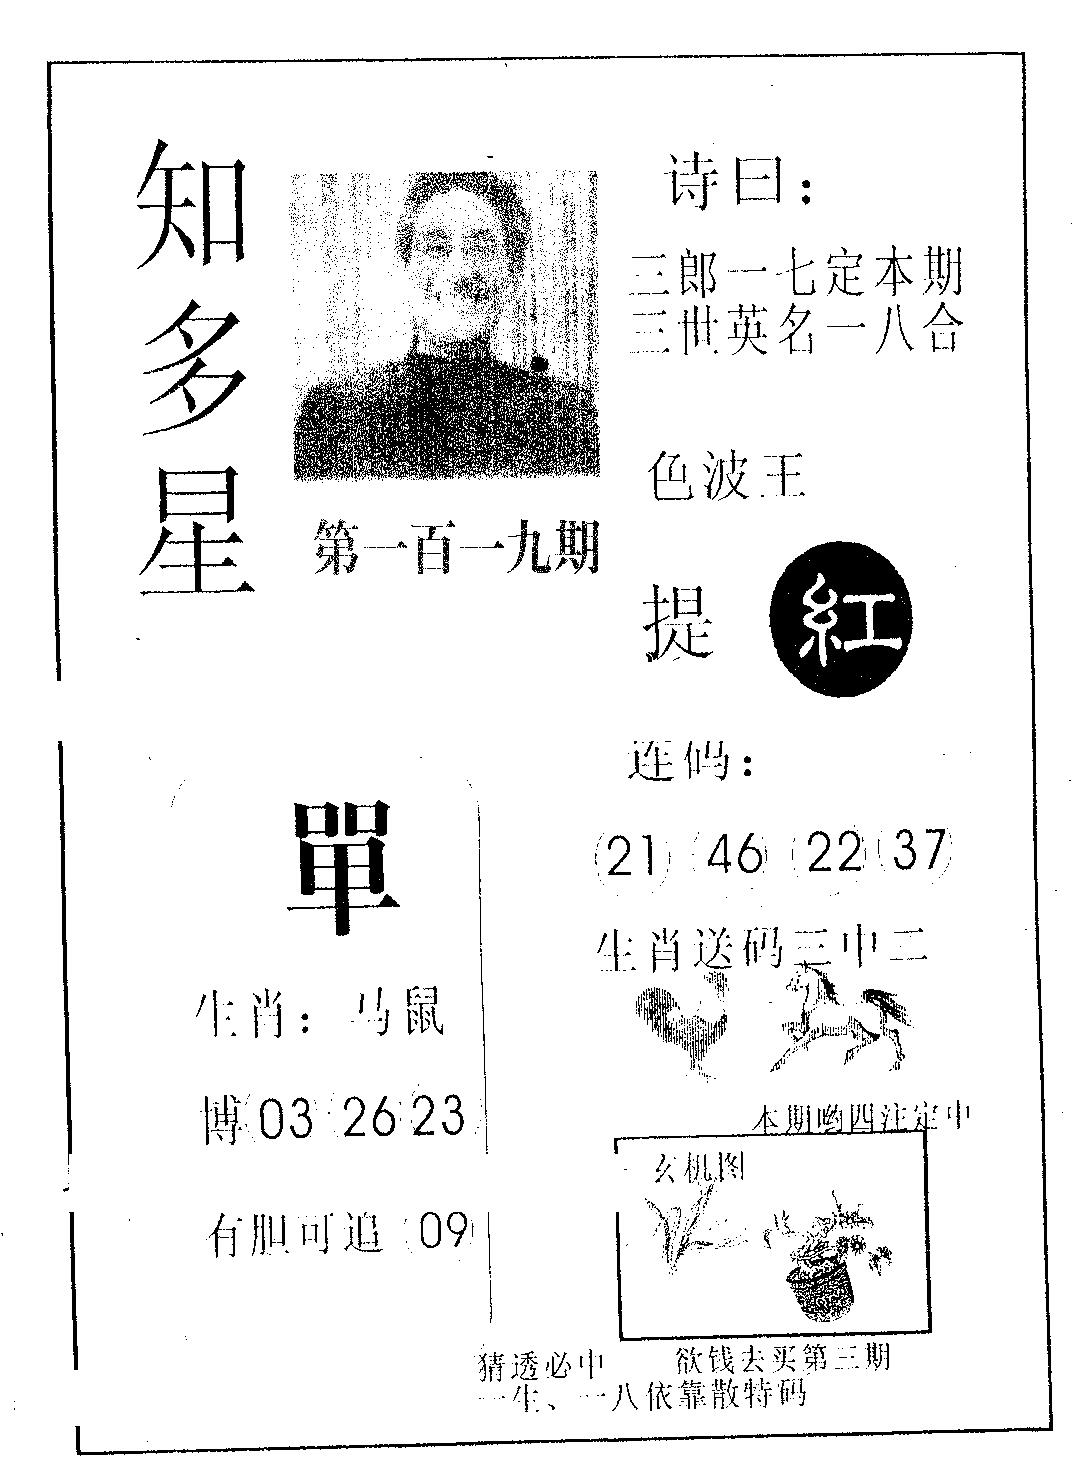 知多星
第一百一九期
诗曰：
三郎一七定本期
三世英名一八合
色波王
提 紅
單
生肖：马鼠
博 03 26 23
有胆可追 09
连码：
21 46 22 37
生肖送码三中二
本期哟四注定中
玄机图
猜透必中 欲钱去买第三期
一生、一八依靠散特码